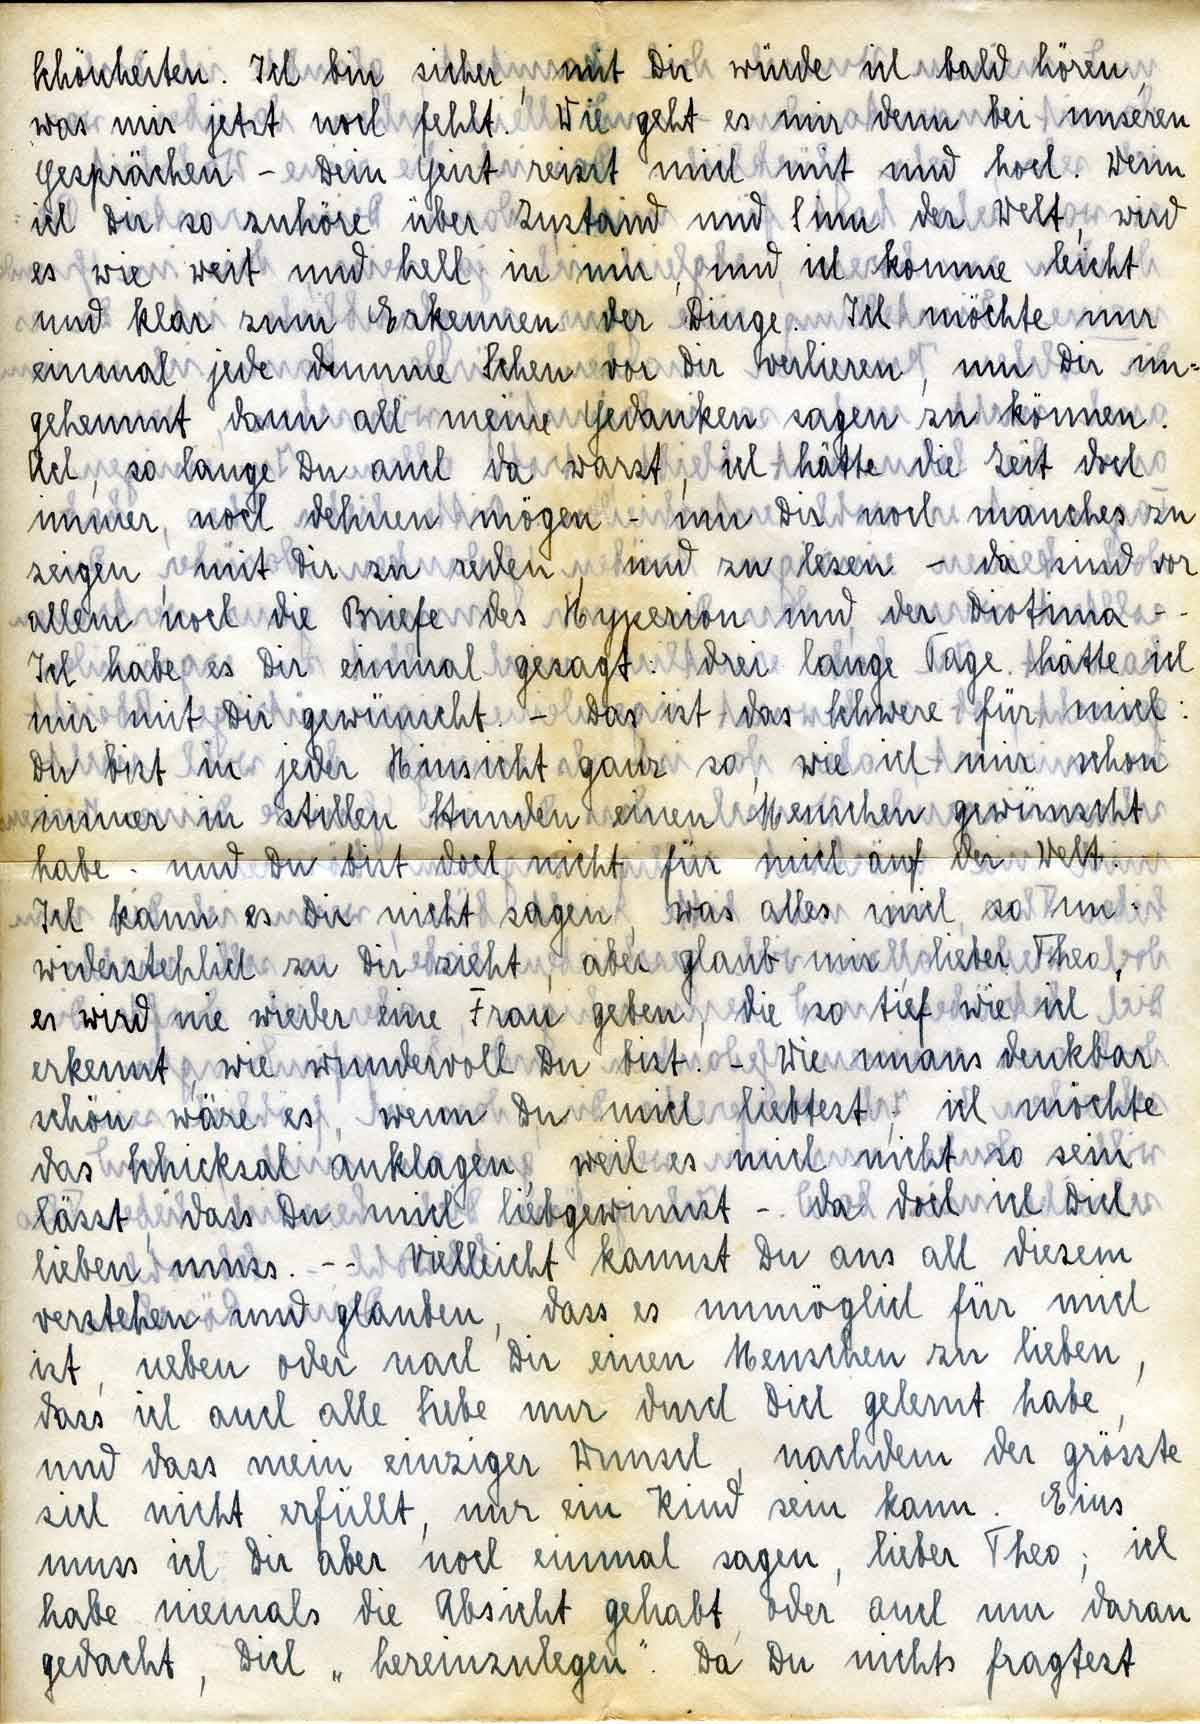 Schönheiten. Ich bin sicher, mit Dir würde ich bald hören,
was mir jetzt noch fehlt. Wie geht es mir denn bei unseren
Gesprächen – Dein Geist reisst mich mit und hoch. Wenn
ich Dir so zuhöre über Zustand und Sinn der Welt, wird
es wie weit und hell in mir, und ich komme leicht
und klar zum Erkennen der Dinge. Ich möchte nur
einmal jede dumme Scheu vor Dir verlieren, um Dir un=
gehemmt dann all meine Gedanken sagen zu können.
Ach, so lange Du auch da warst, ich hätte die Zeit doch
immer noch dehnen mögen – um Dir noch manches zu
zeigen, mit Dir zu reden, und zu lesen – da sind vor
allem noch die Briefe des Hyperion und der Diotima - -
Ich habe es Dir einmal gesagt: drei lange Tage hätte ich
mir mit Dir gewünscht. – Das ist das Schwere für mich:
Du bist in jeder Hinsicht ganz so, wie ich mir schon
immer in stillen Stunden einen Menschen gewünscht
habe - und Du bist doch nicht für mich auf der Welt. -
Ich kann es Dir nicht sagen, was alles mich so un-
widerstehlich zu Dir zieht, aber glaub mir lieber Theo,
es wird nie wieder eine Frau geben, die so tief wie ich
erkennt, wie wundervoll Du bist. – Wie unausdenkbar
schön wäre es, wenn Du mich liebtest; ich möchte
das Schicksal anklagen, weil es mich nicht so sein
lässt, dass Du mich liebgewinnst – da doch ich Dich
lieben muss. -- Vielleicht kannst Du aus all diesem
verstehen und glauben, dass es unmöglich für mich
ist, neben oder nach Dir einen Menschen zu lieben,
dass ich auch alle Liebe nur durch Dich gelernt habe,
und dass mein einziger Wunsch, nachdem der grösste
sich nicht erfüllt, nur ein Kind sein kann. Eins
muss ich Dir aber noch einmal sagen, lieber Theo; ich
habe niemals die Absicht gehabt, oder auch nur daran
gedacht, Dich „hereinzulegen". Da Du nichts fragtest